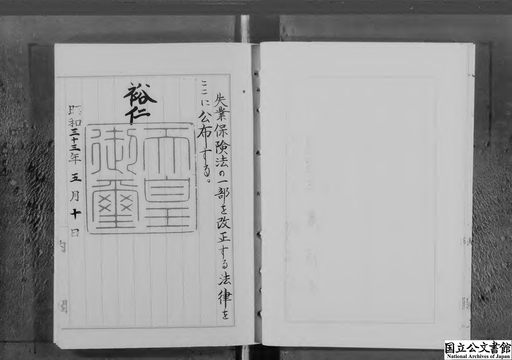 失業保険法の一部を改正する法律を
ここに公布する。
裕仁
天皇
御璽
昭和三十三年五月十日
国立公文書館
National Archives of Japan